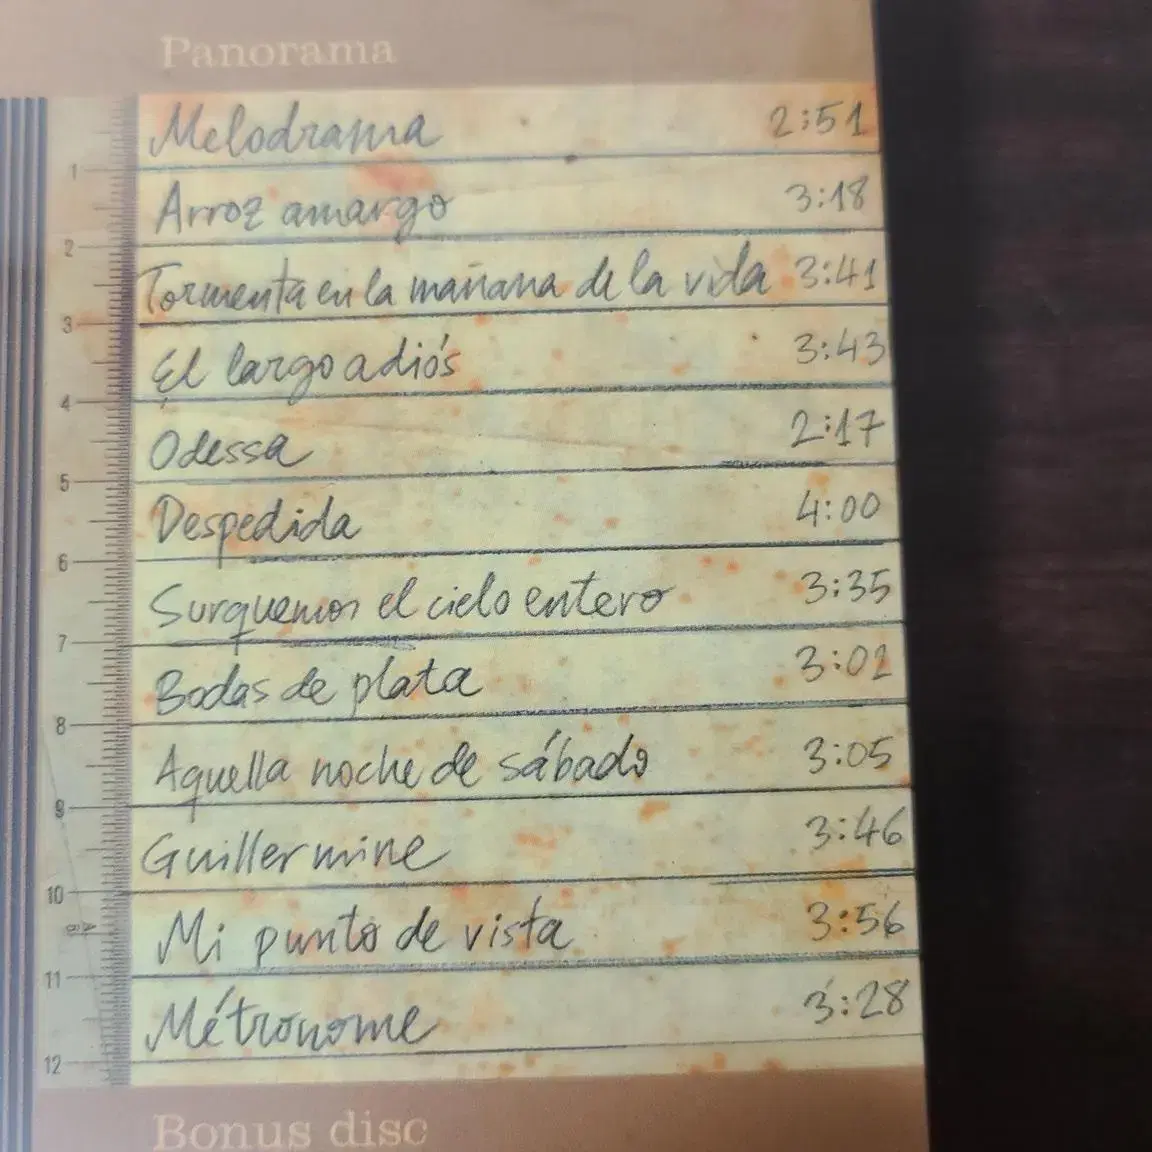 Panorama
Melodrama 2:51
1 Arroz amargo 3:18
2 Tormenta en la mañana de la vida 3:41
3 El largo adiós 3:43
4 Odessa 2:17
5 Despedida 4:00
6 Surquemos el cielo entero 3:35
7 Bodas de plata 3:02
8 Aquella noche de sábado 3:05
9 Guillermine 3:46
10 Mi punto de vista 3:56
11 Métronome 3:28
12
Bonus disc